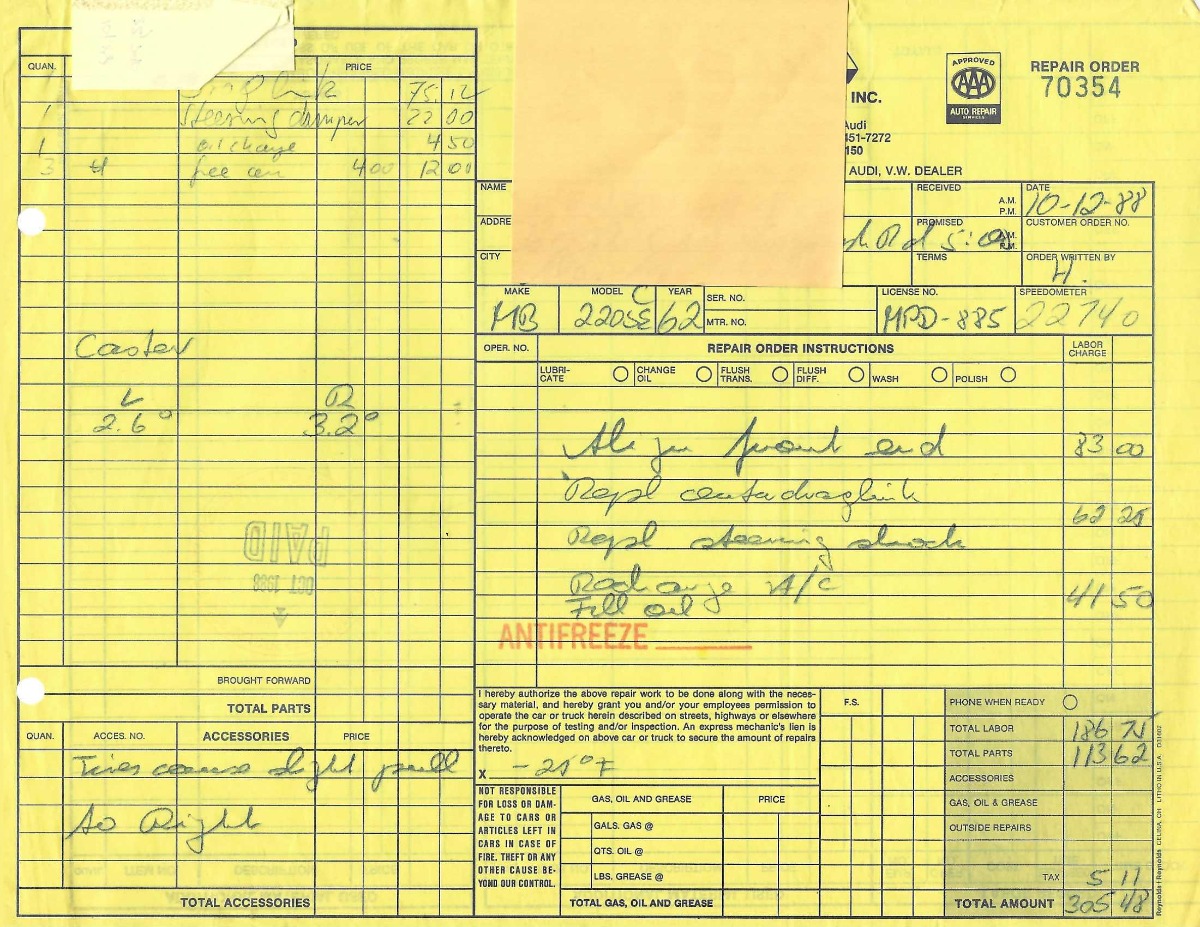 QUAN. PRICE
75.12
1 Steering damper 22 00
1 oil charge 4 50
3 free on 4 00 12 00
Caster
L R
2.6° 3.2°
PAID
OCT 1988
BROUGHT FORWARD
TOTAL PARTS
QUAN. ACCES. NO. ACCESSORIES PRICE
Tires cause slight pull
to Right
TOTAL ACCESSORIES
INC.
APPROVED
AAA
AUTO REPAIR
SERVICES
REPAIR ORDER
70354
Audi
451-7272
150
AUDI, V.W. DEALER
NAME RECEIVED A.M. P.M. DATE 10-12-88
ADDRE Rd PROMISED 5:00 A.M. P.M. CUSTOMER ORDER NO.
CITY TERMS ORDER WRITTEN BY H.
MAKE MODEL YEAR SER. NO. LICENSE NO. SPEEDOMETER
MB 220SE C 62 MTR. NO. MPD-885 22740
OPER. NO. REPAIR ORDER INSTRUCTIONS LABOR CHARGE
LUBRI-CATE CHANGE OIL FLUSH TRANS. FLUSH DIFF. WASH POLISH
Align front end 83 00
Repl center draglink
62 25
Repl steering shock
Recharge A/C
41 50
Fill oil
ANTIFREEZE
I hereby authorize the above repair work to be done along with the neces-
sary material, and hereby grant you and/or your employees permission to
operate the car or truck herein described on streets, highways or elsewhere
for the purpose of testing and/or inspection. An express mechanic's lien is
hereby acknowledged on above car or truck to secure the amount of repairs
thereto.
X -25°F
F.S.
PHONE WHEN READY
TOTAL LABOR 186 75
TOTAL PARTS 113 62
ACCESSORIES
GAS, OIL & GREASE
OUTSIDE REPAIRS
TAX 5 11
TOTAL AMOUNT 305 48
NOT RESPONSIBLE
FOR LOSS OR DAM-
AGE TO CARS OR
ARTICLES LEFT IN
CARS IN CASE OF
FIRE, THEFT OR ANY
OTHER CAUSE BE-
YOND OUR CONTROL.
GAS, OIL AND GREASE PRICE
GALS. GAS @
QTS. OIL @
LBS. GREASE @
TOTAL GAS, OIL AND GREASE
Reynolds+Reynolds CELINA, OH LITHO IN U.S.A.